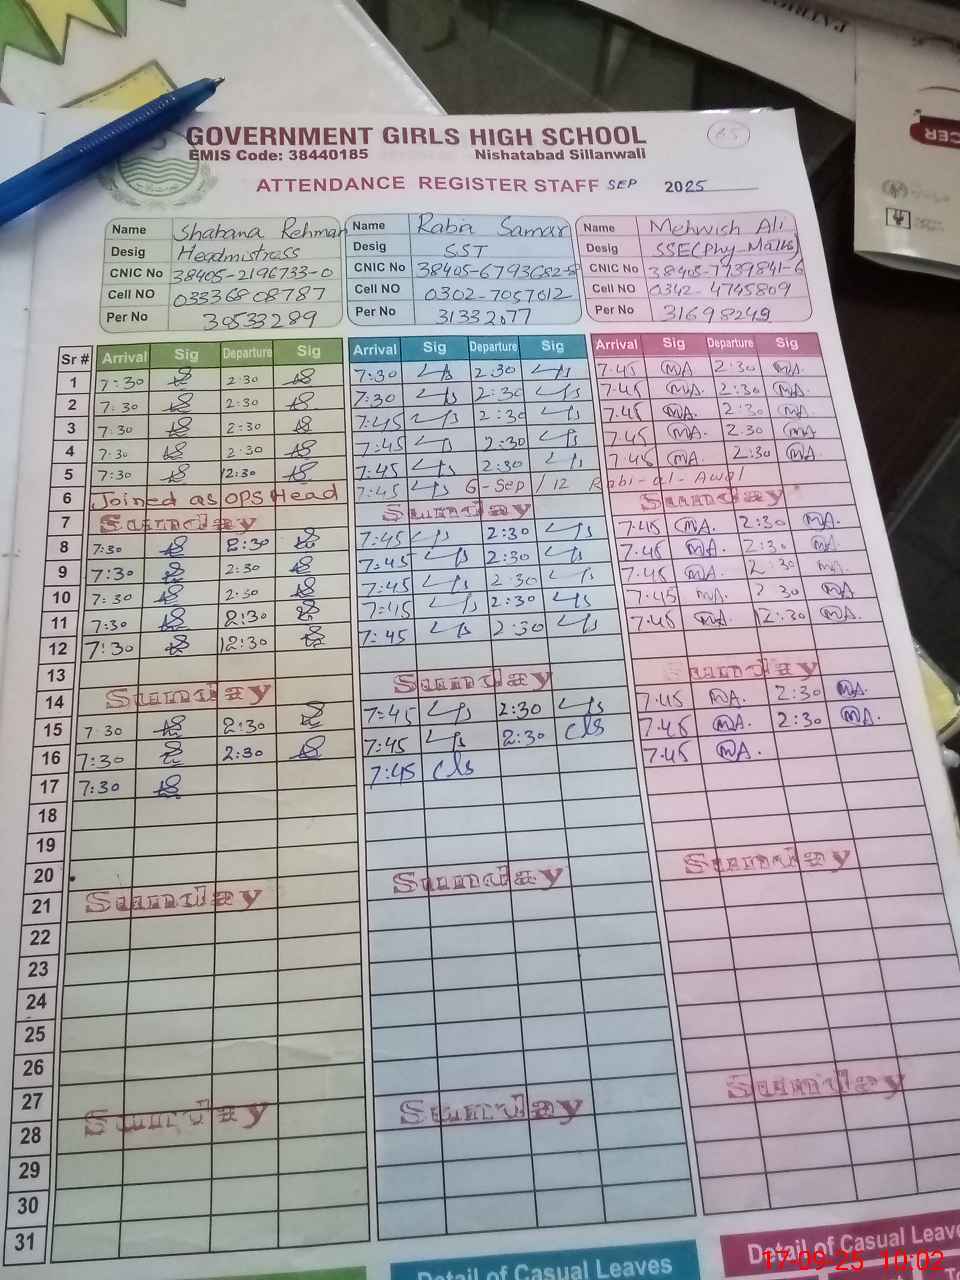 GOVERNMENT GIRLS HIGH SCHOOL
EMIS Code: 38440185 Nishatabad Sillanwali
ATTENDANCE REGISTER STAFF SEP 2025
Name Shabana Rehman Name Rabia Samar Name Mehwish Ali
Desig Headmistress Desig SST Desig SSE(Phy-Maths)
CNIC No 38405-2196733-0 CNIC No 38405-6793682-8 CNIC No 38405-7739841-6
Cell NO 03336808787 Cell NO 0302-7057612 Cell NO 0342-4745809
Per No 30533289 Per No 31332077 Per No 31698249
Sr # Arrival Sig Departure Sig Arrival Sig Departure Sig Arrival Sig Departure Sig
1 7:30 2:30 7:30 2:30 7:45 MA. 2:30 MA.
2 7:30 2:30 7:30 2:30 7:45 MA. 2:30 MA.
3 7:30 2:30 7:45 2:30 7:45 MA. 2:30 MA.
4 7:30 2:30 7:45 2:30 7:45 MA. 2:30 MA.
5 7:30 2:30 7:45 2:30 7:45 MA. 2:30 MA.
6 Joined as OPS Head 7:45 6-Sep/12 Rabi-al-Awal
7 Sunday Sunday Sunday
8 7:30 2:30 7:45 2:30 7:45 MA. 2:30 MA.
9 7:30 2:30 7:45 2:30 7:45 MA. 2:30 MA.
10 7:30 2:30 7:45 2:30 7:45 MA. 2:30 MA.
11 7:30 2:30 7:45 2:30 7:45 MA. 2:30 MA.
12 7:30 2:30 7:45 2:30 7:45 MA. 2:30 MA.
13
14 Sunday Sunday Sunday
15 7:30 2:30 7:45 2:30 7:45 MA. 2:30 MA.
16 7:30 2:30 7:45 2:30 7:45 MA. 2:30 MA.
17 7:30 7:45 7:45 MA.
18
19
20
21 Sunday Sunday Sunday
22
23
24
25
26
27
28 Sunday Sunday Sunday
29
30
31
Detail of Casual Leaves Detail of Casual Leave
17-09-25 10:02